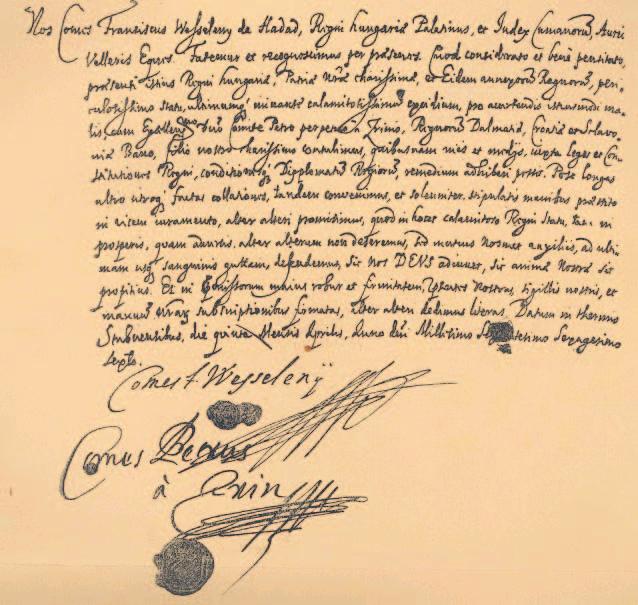 Nos Comes Franciscus Wesseleny de Hadad, Regni Hungariæ Palatinus, et Iudex Cumanorũ, Aurei
Velleris Eques. Fatemur et recognoscimus per præsentes. Quod considerato et benè pensitato,
præsenti istius Regni Hungariæ, Patriæ Nr̃æ charissimæ, et Eidem annexorũ Regnorũ, peri-
culosissimo statu, ultimumq́ minante calamitosissimũ excidium, pro avertendis istiusmodi ma-
lis, cum Comite Petro perpetuo à Zrinio, Regnorũ Dalmatiæ, Croatiæ et Sclavo-
niæ Bano, nostro charissimo contulimus, quibusnam mediis et modis, iuxta leges et Con-
stitutiones Regni, Dipplomata Regiorũ, remedium adhiberi posset. Post longas
ultro utroq́ factas collationes, tandem convenimus, et solemniter, stipulatis manibus præstito
in vicem iuramento, alter alteri promisimus, quod in hocce calamitoso Regni statu, tam in
prosperis, quam adversis, alter alterum non deseremus, sed mutuis Nosmet auxiliis, ad ulti-
mam usq́ sanguinis guttam, defendemus, sic nos DEUS adiuvet, sic animæ Nostræ sit
propitius. Et in maius robur et firmitatem, præsentes nostras, sigillis nostris, et
manuum subscriptionibus firmatas, alter alteri dedimus literas. Datum in thermis
Stubnensibus, die quinta Mensis Aprilis, Anno Dñi Millesimo Sexagesimo
sexto.
Comes f. Wesselenÿ
Comes Petrus
à Zrin